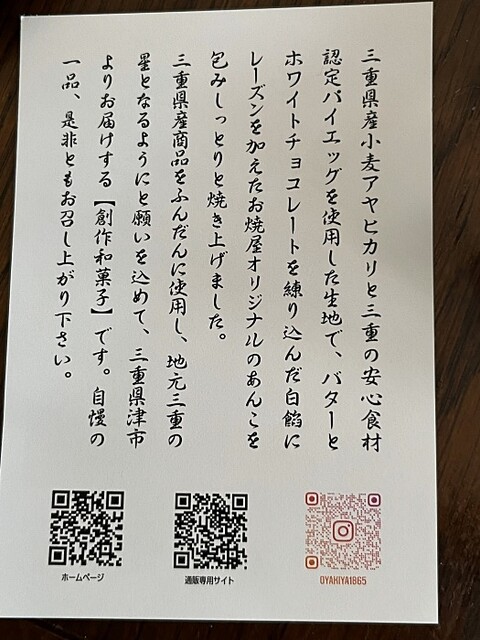 三重県産小麦アヤヒカリと三重の安心食材
認定パイエッグを使用した生地で、バターと
ホワイトチョコレートを練り込んだ白餡に
レーズンを加えたお焼屋オリジナルのあんこを
包みしっとりと焼き上げました。
三重県産商品をふんだんに使用し、地元三重の
星となるようにと願いを込めて、三重県津市
よりお届けする【創作和菓子】です。自慢の
一品、是非ともお召し上がり下さい。
ホームページ
通販専用サイト
OYAKIYA1865